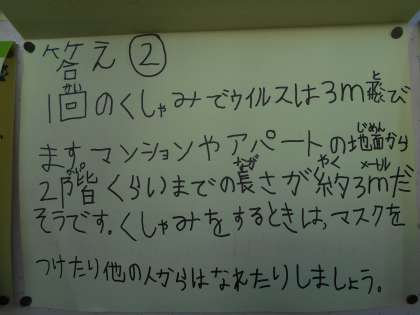 答え②
1個のくしゃみでウイルスは3m飛び
ます。マンションやアパートの地面から
2階くらいまでの長さが約3mだ
そうです。くしゃみをするときは、マスクを
つけたり他の人からはなれたりしましょう。